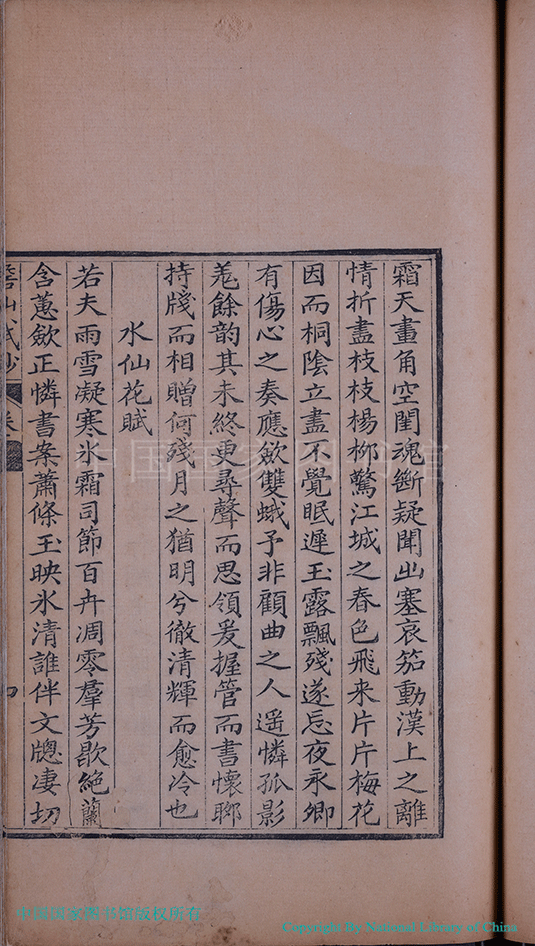 霜天畫角空閨魂斷疑聞出塞哀笳動漢上之離
情折盡枝枝楊柳驚江城之春色飛来片片梅花
因而桐陰立盡不覺眠遲玉露飄殘遂忘夜永卿
有傷心之奏應歛雙蛾予非顧曲之人遥憐孤影
羗餘韵其未終更尋聲而思領爰握管而書懷聊
持牋而相贈何殘月之猶明兮徹清輝而愈冷也
水仙花賦
若夫雨雪凝寒氷霜司節百卉凋零羣芳歇絶蘭
含蕙歛正憐書案蕭條玉映氷清誰伴文牕凄切
四
中国国家图书馆
中国国家图书馆版权所有
Copyright By National Library of China